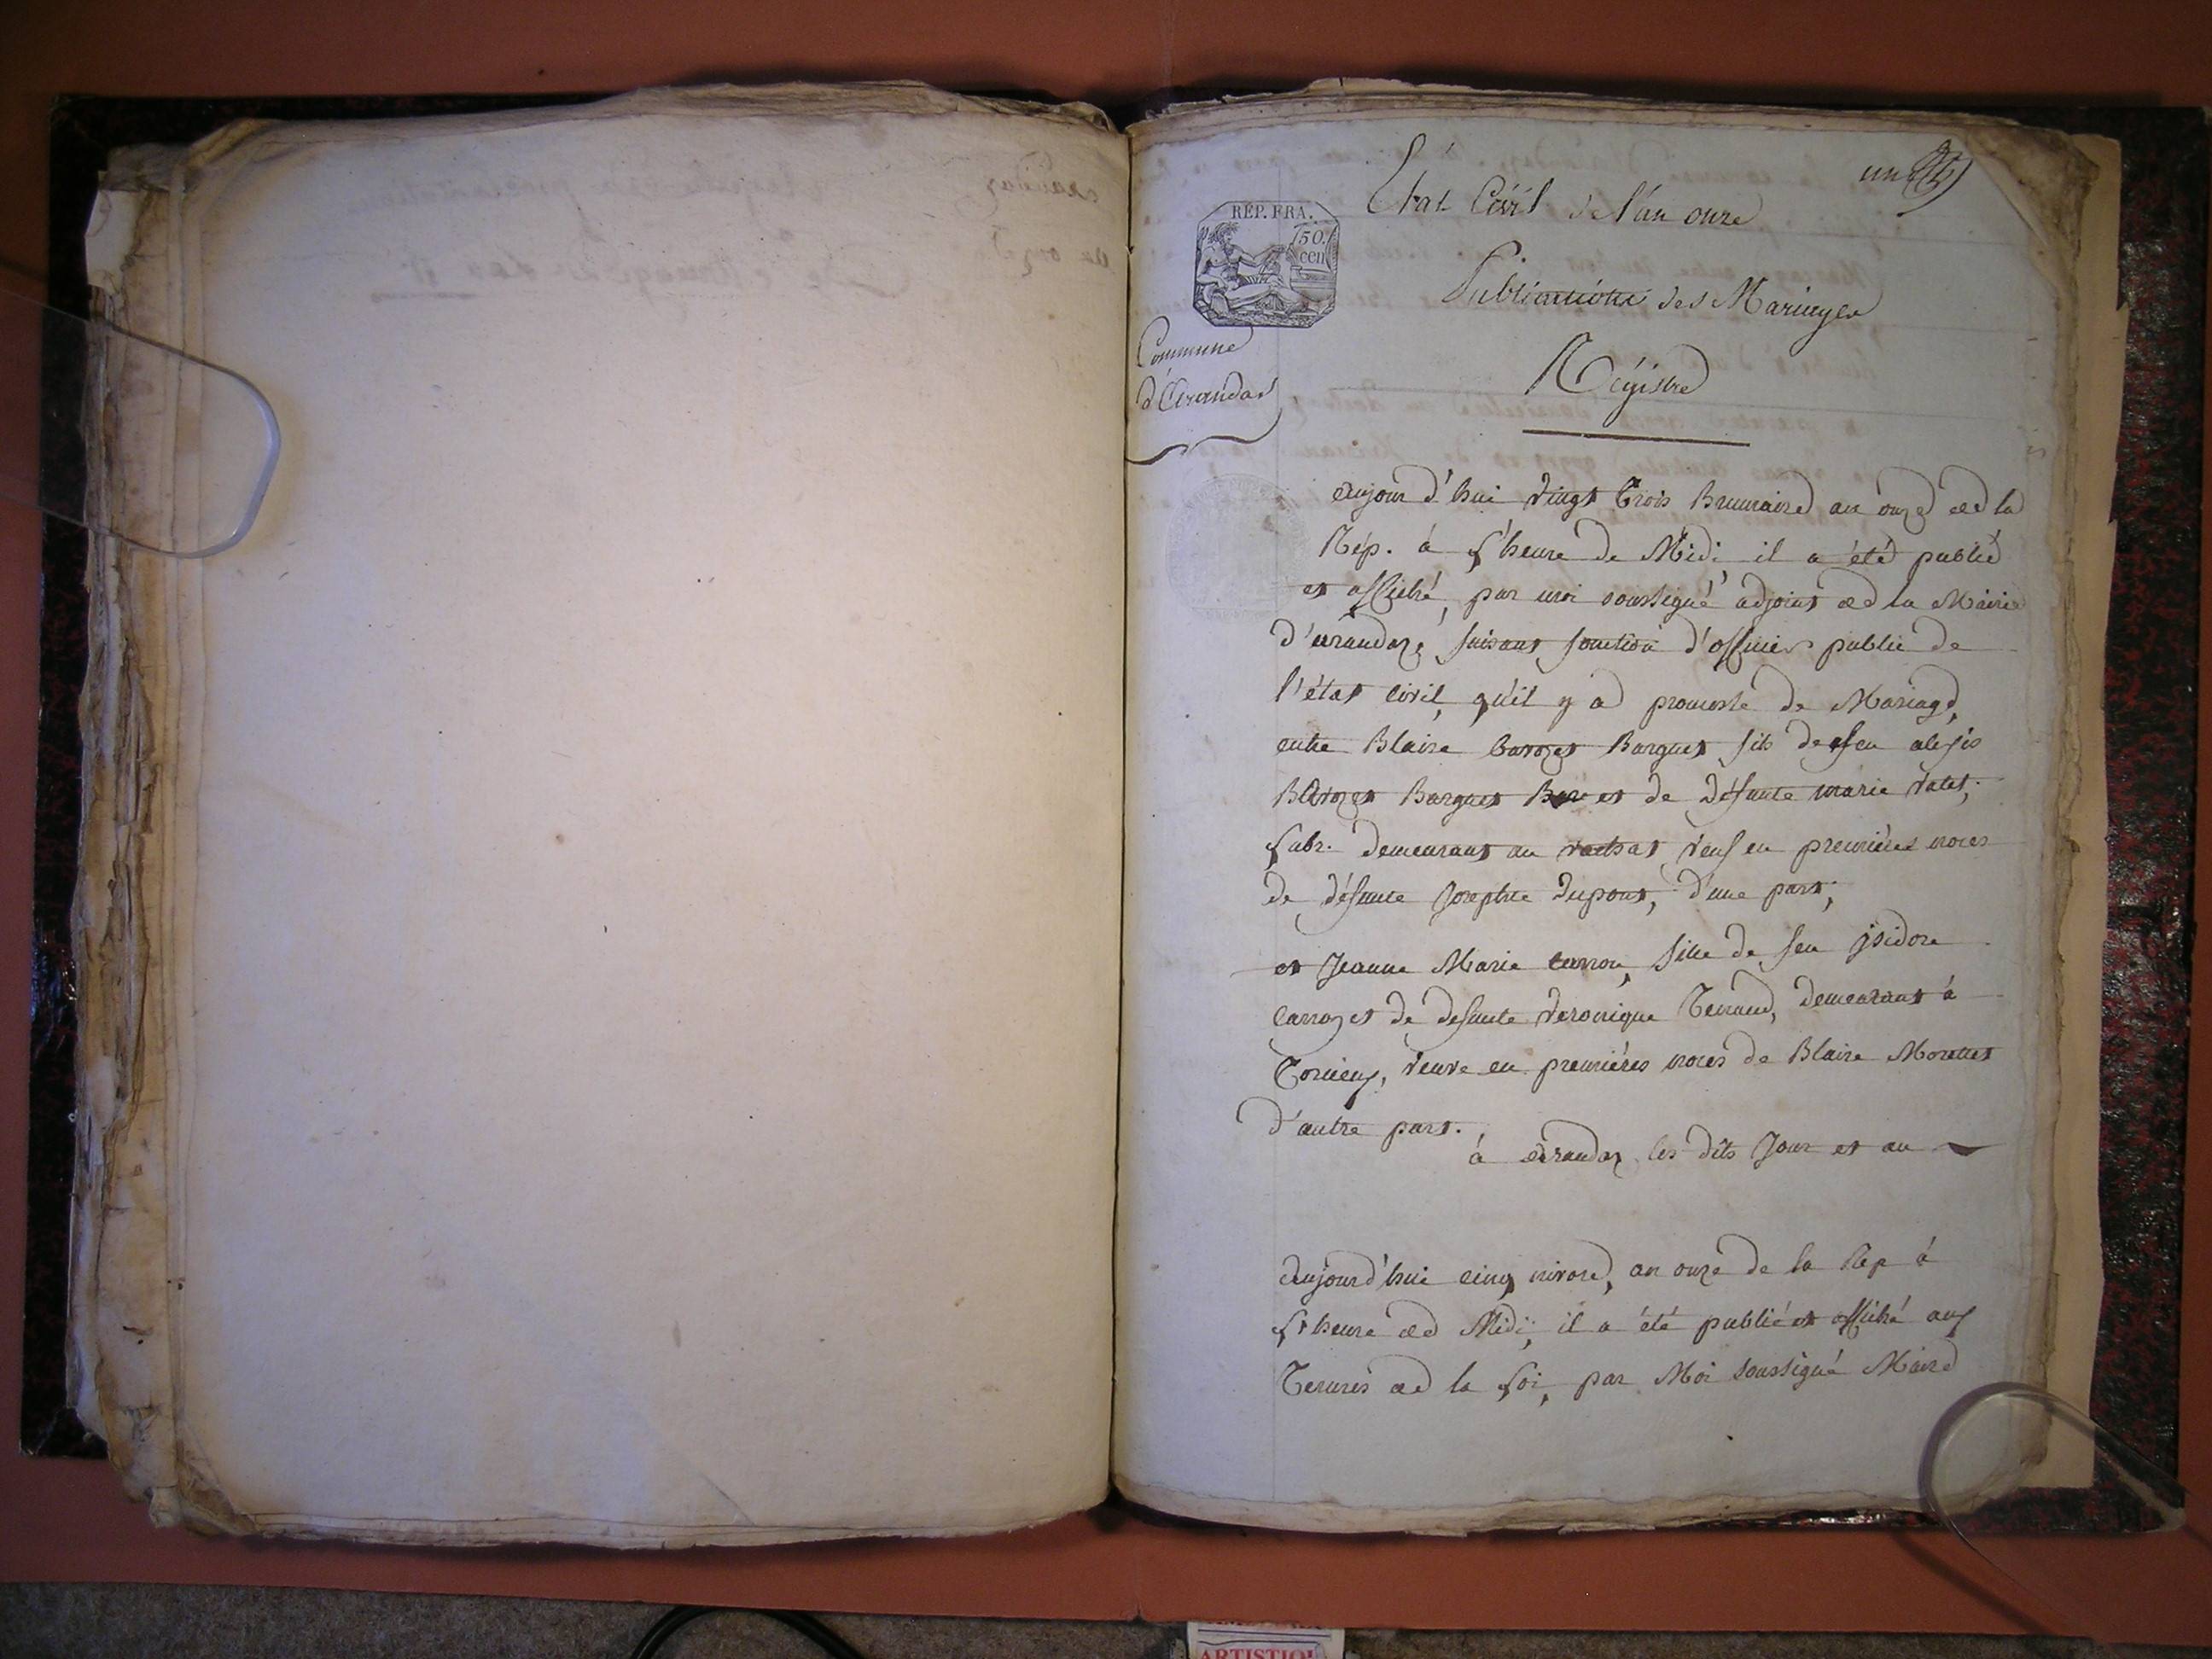 un
Etat Civil de l'an onze
REP. FRA.
50.
cen
Publications des Mariages
Commune
d'Arandas
Régistre
aujour d'hui vingt trois Brumaire an onze de la
Rép. à l'heure de Midi il a été publié
et affiché, par moi soussigné adjoint de la Mairie
d'arandaz, faisant fonction d'officier public de
l'état civil, qu'il y a promesse de Mariage,
entre Blaise barozet Barguet fils de feu alexis
Barozet Barguet et de défunte marie
demeurant au veuf en premières noces
de défunte Josephte Dupont, d'une part,
et Jeanne Marie carron, fille de feu jsidore
carroz et de defunte veronique demeurant à
Torcieux, veuve en premières noces de Blaise
d'autre part.
à arandaz les dits Jour et an
aujourd'hui cinq nivose, an onze de la Rep à
l'heure de Midi, il a été publié et affiché aux
Termes de la loi, par Moi soussigné Maire
ARTISTIQU